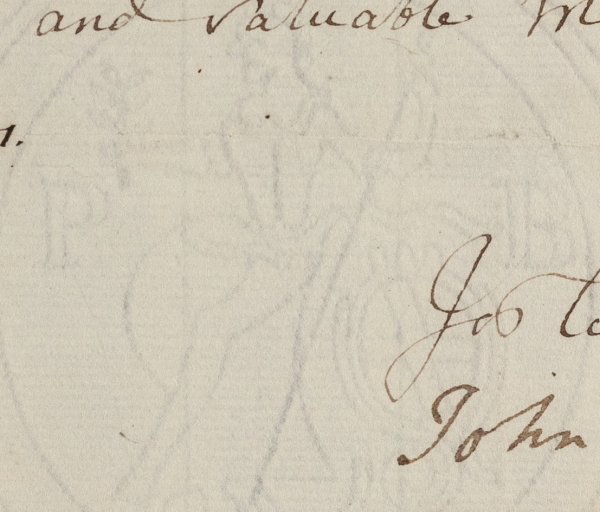 and valuable
1.
Jos
John